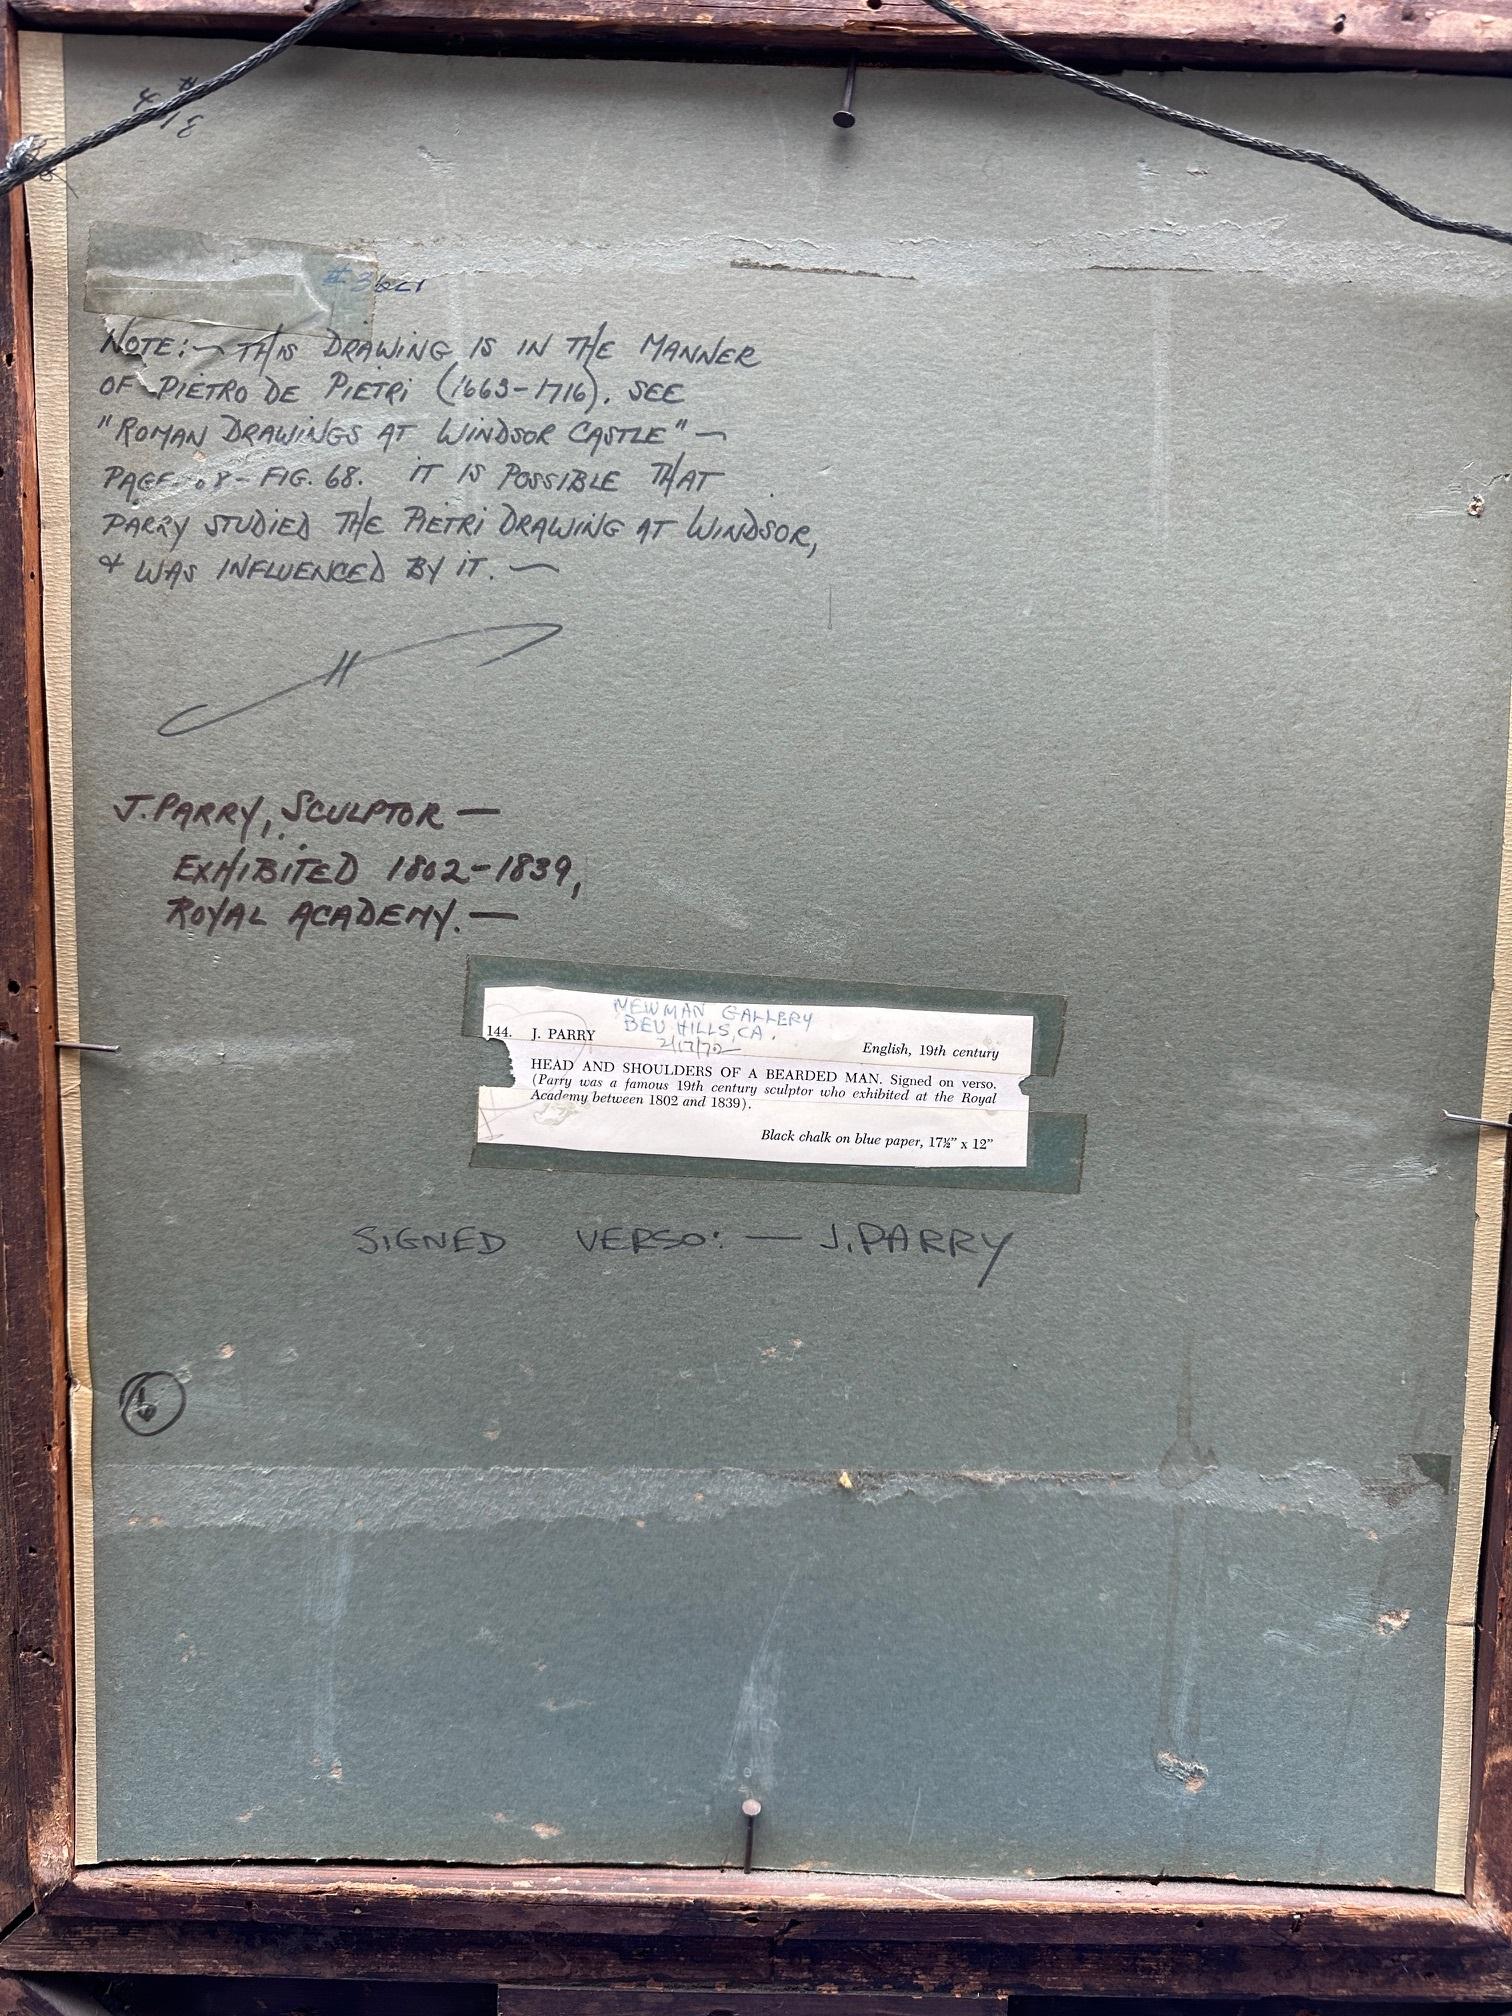 NOTE:— THIS DRAWING IS IN THE MANNER
OF PIETRO DE PIETRI (1663-1716). SEE
"ROMAN DRAWINGS AT WINDSOR CASTLE" —
PAGE 8 - FIG. 68. IT IS POSSIBLE THAT
PARRY STUDIED THE PIETRI DRAWING AT WINDSOR,
& WAS INFLUENCED BY IT. —
H
J. PARRY, SCULPTOR —
EXHIBITED 1802-1839,
ROYAL ACADEMY. —
NEWMAN GALLERY
BEV HILLS, CA.
2/17/72
144. J. PARRY English, 19th century
HEAD AND SHOULDERS OF A BEARDED MAN. Signed on verso.
(Parry was a famous 19th century sculptor who exhibited at the Royal
Academy between 1802 and 1839).
Black chalk on blue paper, 17½" x 12"
SIGNED VERSO: — J. PARRY